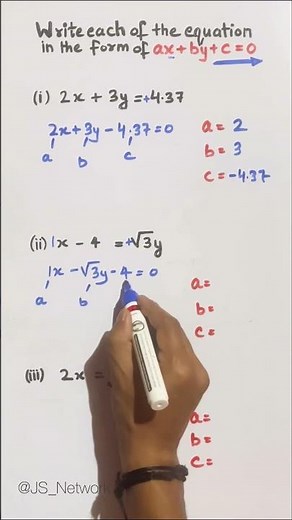 Write each of the equation
in the form of ax+by+c=0
(i) 2x + 3y = +4.37
2x + 3y - 4.37 = 0
a b c
a = 2
b = 3
c = -4.37
(ii) 1x - 4 = +√3y
1x - √3y - 4 = 0
a b
a =
b =
c =
(iii) 2x =
a =
b =
c =
@JS_Network